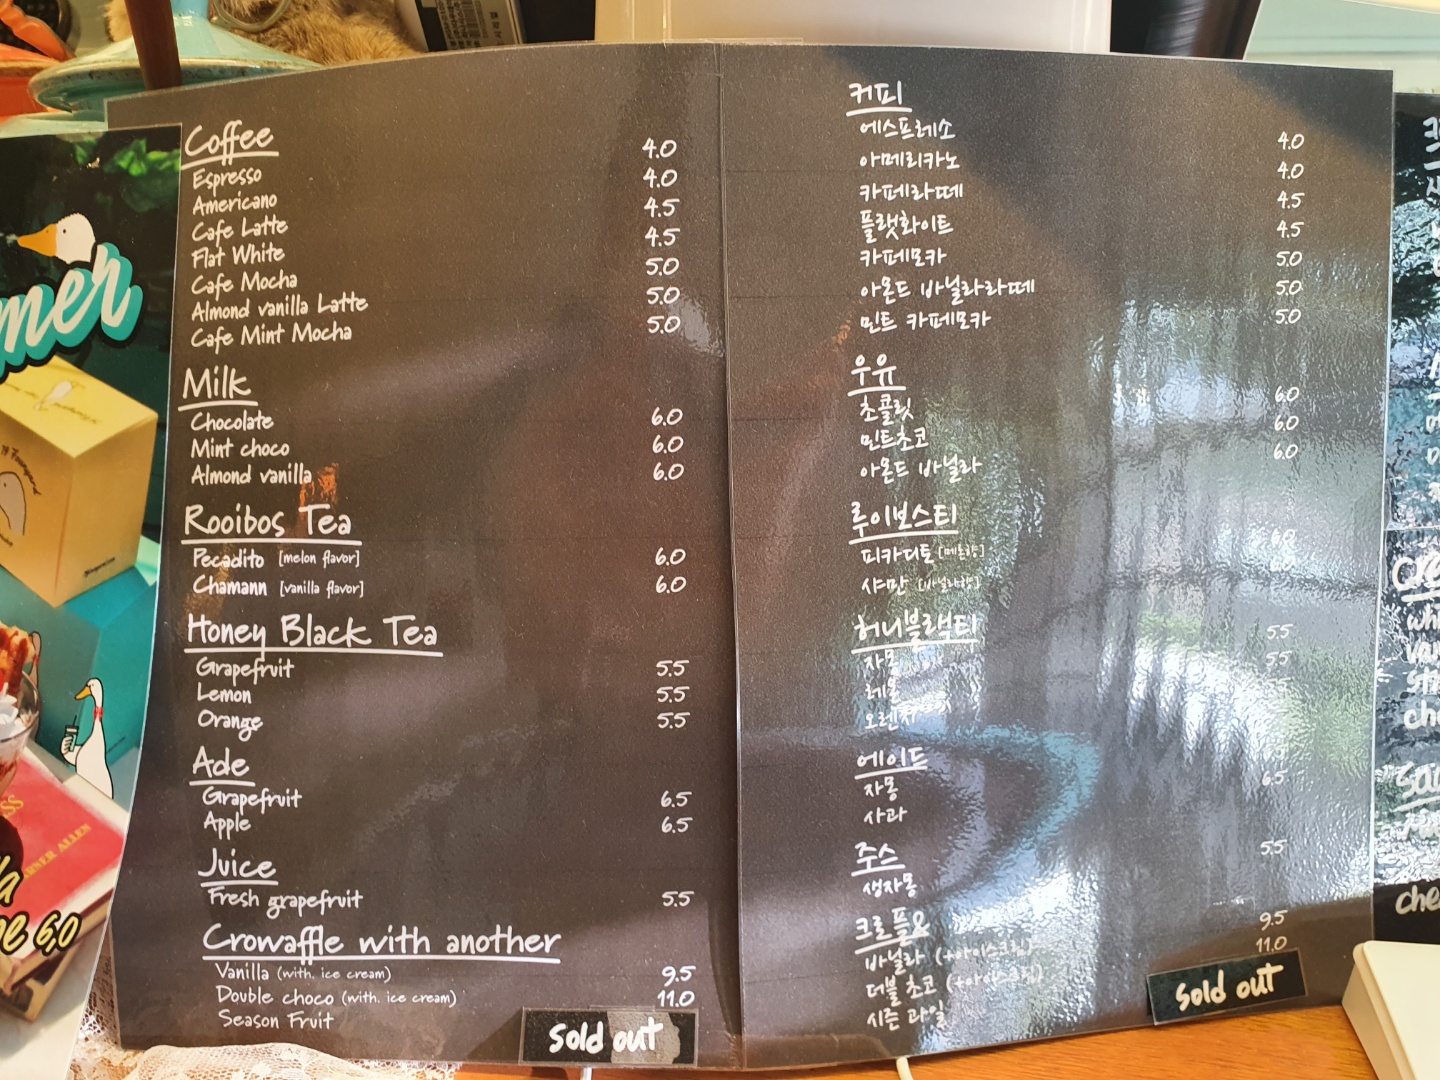 Coffee
Espresso 4.0
Americano 4.0
Cafe Latte 4.5
Flat White 4.5
Cafe Mocha 5.0
Almond vanilla Latte 5.0
Cafe Mint Mocha 5.0
Milk
Chocolate 6.0
Mint choco 6.0
Almond vanilla 6.0
Rooibos Tea
Pecadito [melon flavor] 6.0
Chamann [vanilla flavor] 6.0
Honey Black Tea
Grapefruit 5.5
Lemon 5.5
Orange 5.5
Ade
Grapefruit 6.5
Apple 6.5
Juice
Fresh grapefruit 5.5
Crowaffle with another
Vanilla (with. ice cream) 9.5
Double choco (with. ice cream) 11.0
Season Fruit Sold out
커피
에스프레소 4.0
아메리카노 4.0
카페라떼 4.5
플랫화이트 4.5
카페모카 5.0
아몬드 바닐라라떼 5.0
민트 카페모카 5.0
우유
초콜릿 6.0
민트초코 6.0
아몬드 바닐라 6.0
루이보스티
피카디토 [메론향] 6.0
샤만 [바닐라향] 6.0
허니블랙티
자몽 5.5
레몬 5.5
오렌지
에이드
자몽 6.5
사과
주스
생자몽 5.5
크로플
바닐라 (+아이스크림) 9.5
더블 초코 (+아이스크림) 11.0
시즌 과일 Sold out
mer
6,0